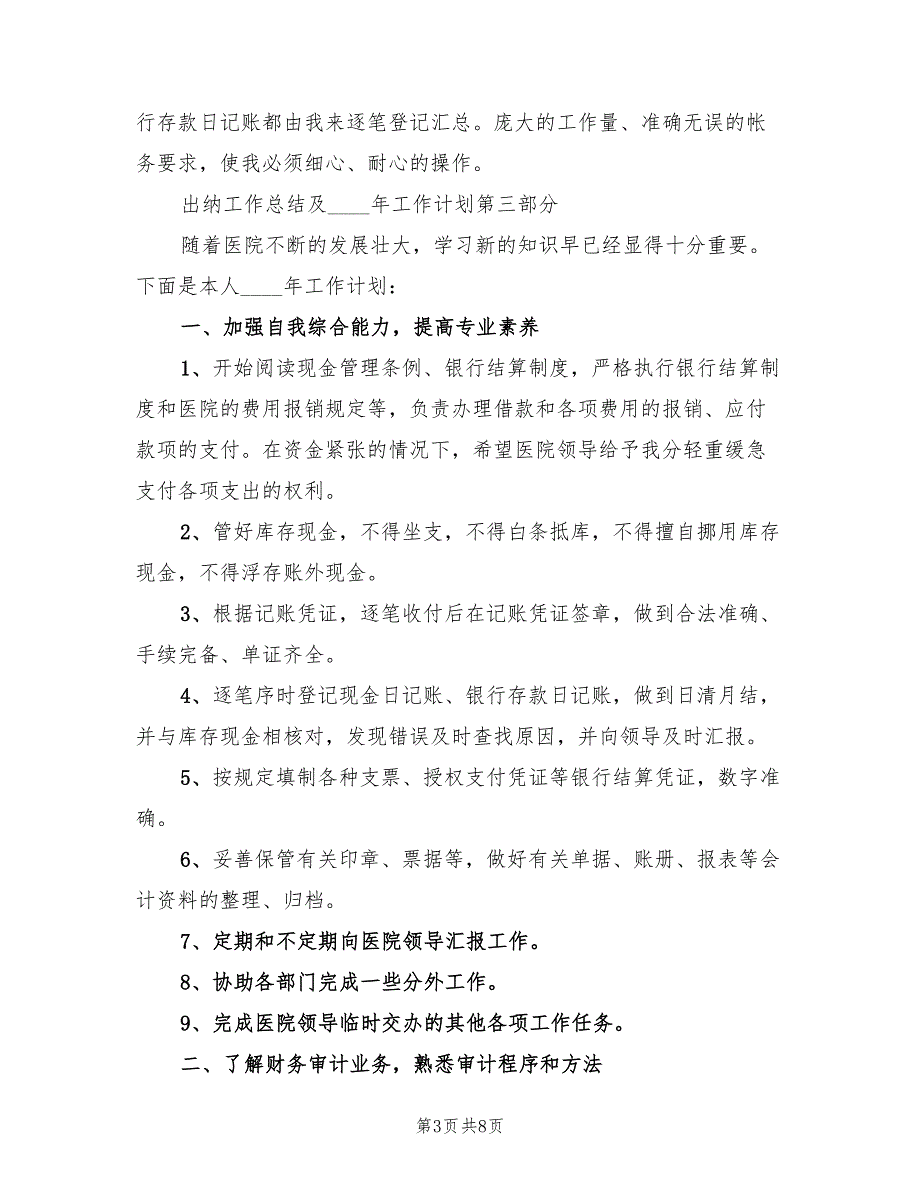 行存款日记账都由我来逐笔登记汇总。庞大的工作量、准确无误的帐
务要求，使我必须细心、耐心的操作。
出纳工作总结及____年工作计划第三部分
随着医院不断的发展壮大，学习新的知识早已经显得十分重要。
下面是本人____年工作计划：
一、加强自我综合能力，提高专业素养
1、开始阅读现金管理条例、银行结算制度，严格执行银行结算制
度和医院的费用报销规定等，负责办理借款和各项费用的报销、应付
款项的支付。在资金紧张的情况下，希望医院领导给予我分轻重缓急
支付各项支出的权利。
2、管好库存现金，不得坐支，不得白条抵库，不得擅自挪用库存
现金，不得浮存账外现金。
3、根据记账凭证，逐笔收付后在记账凭证签章，做到合法准确、
手续完备、单证齐全。
4、逐笔序时登记现金日记账、银行存款日记账，做到日清月结，
并与库存现金相核对，发现错误及时查找原因，并向领导及时汇报。
5、按规定填制各种支票、授权支付凭证等银行结算凭证，数字准
确。
6、妥善保管有关印章、票据等，做好有关单据、账册、报表等会
计资料的整理、归档。
7、定期和不定期向医院领导汇报工作。
8、协助各部门完成一些分外工作。
9、完成医院领导临时交办的其他各项工作任务。
二、了解财务审计业务，熟悉审计程序和方法
第3页 共8页